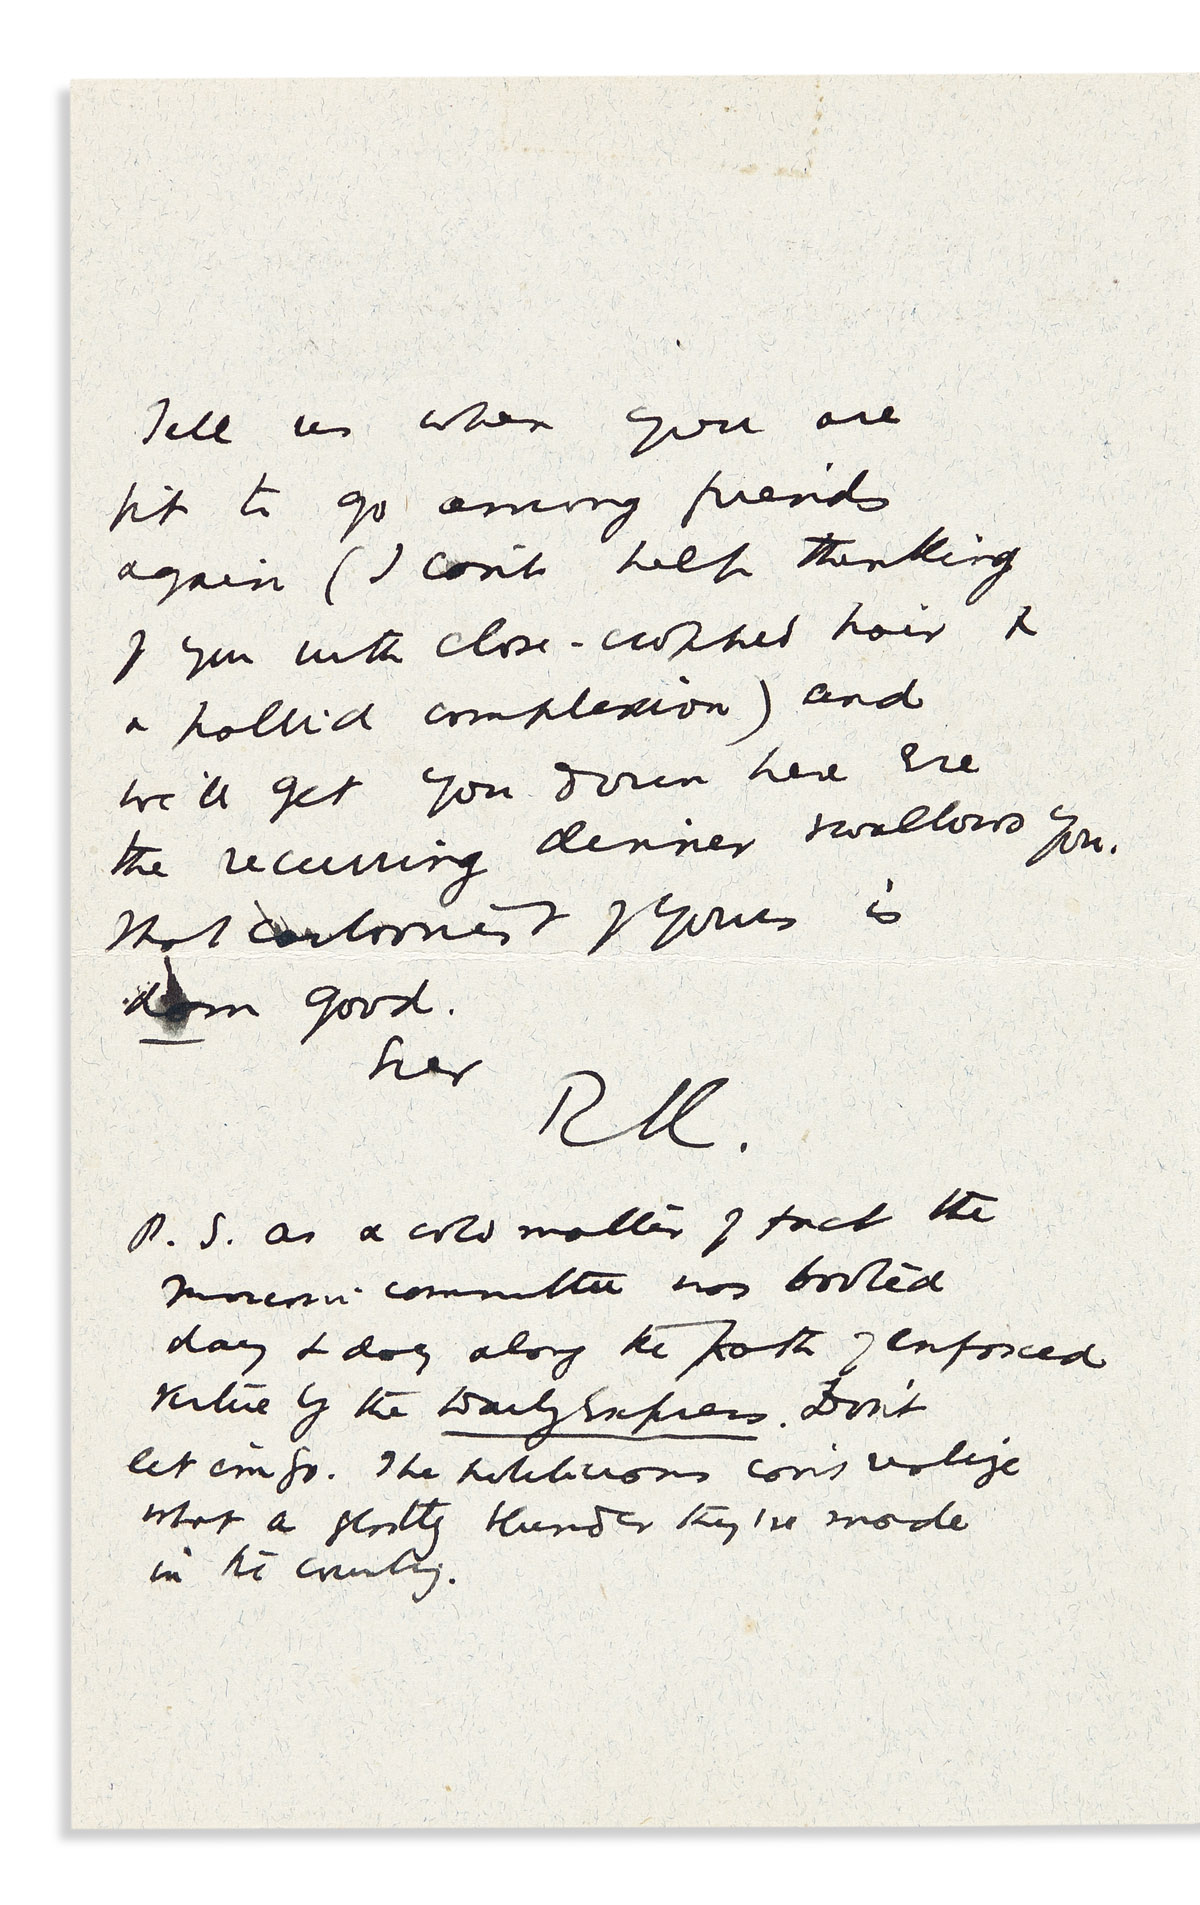 Tell us when you are
fit to go among friends
again (I can't help thinking
of you with close-cropped hair &
a pallid complexion) and
we'll get you down here ere
the recurring dinner swallows you.
That cartoonist of yours is
dam good.
Ever
RK.
P.S. As a cold matter of fact the
Marconi committee was booted
day & day along the path of enforced
virtue by the Daily Express. Don't
let 'em go. The politicians can't realize
what a ghastly blunder they've made
in the country.